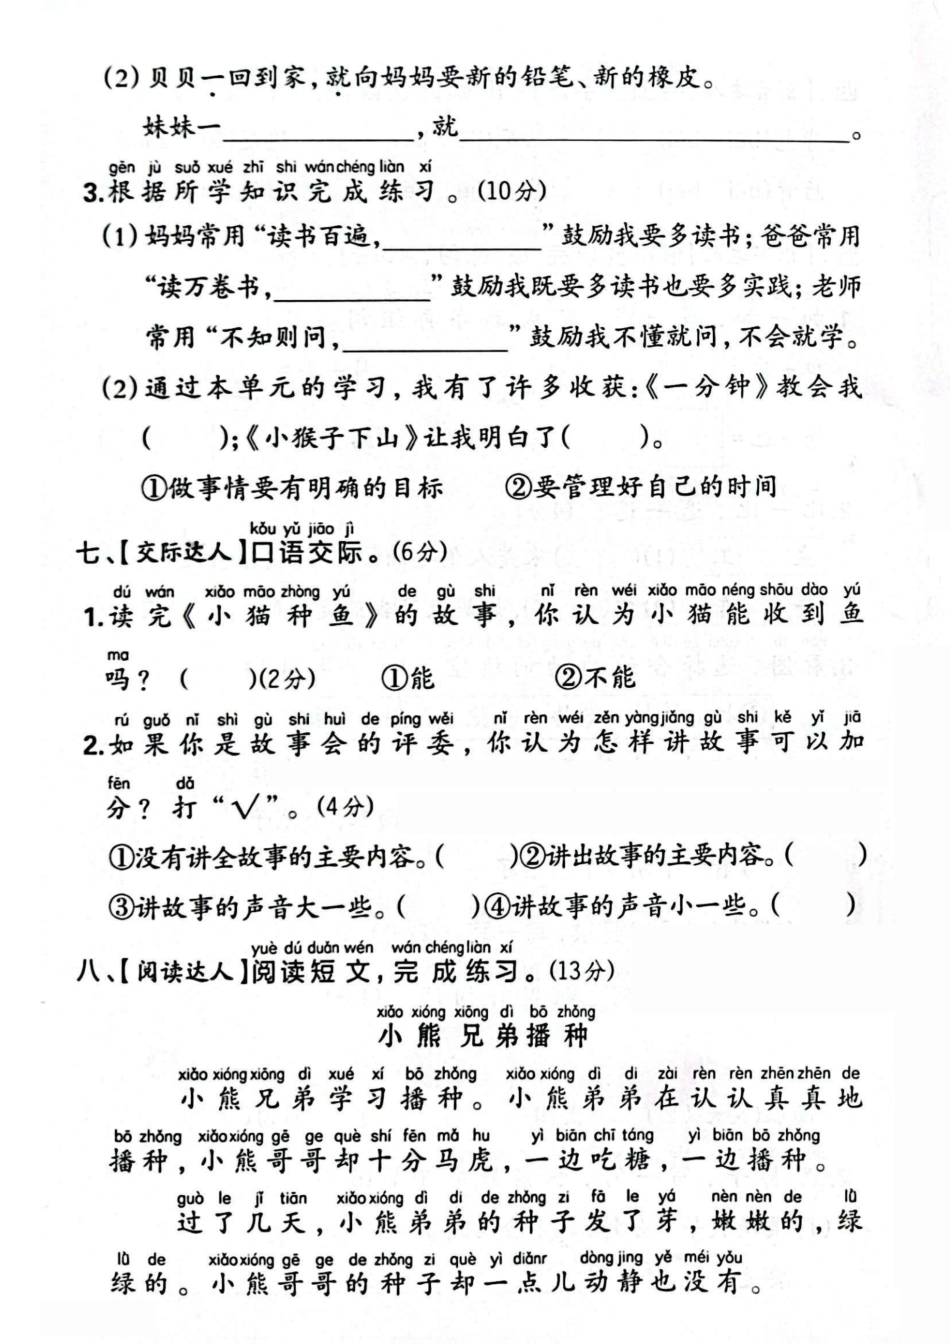 (2)贝贝一回到家,就向妈妈要新的铅笔、新的橡皮。
妹妹一____________,就________________________。
gēn jù suǒ xué zhī shi wán chéng liàn xí
3.根据所学知识完成练习。(10分)
(1)妈妈常用“读书百遍,__________”鼓励我要多读书;爸爸常用
“读万卷书,__________”鼓励我既要多读书也要多实践;老师
常用“不知则问,__________”鼓励我不懂就问,不会就学。
(2)通过本单元的学习,我有了许多收获:《一分钟》教会我
(  );《小猴子下山》让我明白了(  )。
①做事情要有明确的目标 ②要管理好自己的时间
kǒu yǔ jiāo jì
七、【交际达人】口语交际。(6分)
dú wán xiǎo māo zhòng yú de gù shi nǐ rèn wéi xiǎo māo néng shōu dào yú
1.读完《小猫种鱼》的故事,你认为小猫能收到鱼
ma
吗?(  )(2分) ①能 ②不能
rú guǒ nǐ shì gù shi huì de píng wěi nǐ rèn wéi zěn yàng jiǎng gù shi kě yǐ jiā
2.如果你是故事会的评委,你认为怎样讲故事可以加
fēn dǎ
分?打“√”。(4分)
①没有讲全故事的主要内容。(  )②讲出故事的主要内容。(  )
③讲故事的声音大一些。(  )④讲故事的声音小一些。(  )
yuè dú duǎn wén wán chéng liàn xí
八、【阅读达人】阅读短文,完成练习。(13分)
xiǎo xióng xiōng dì bō zhǒng
小熊兄弟播种
xiǎo xióng xiōng dì xué xí bō zhǒng xiǎo xióng dì di zài rèn rèn zhēn zhēn de
小熊兄弟学习播种。小熊弟弟在认认真真地
bō zhǒng xiǎo xióng gē ge què shí fēn mǎ hu yì biān chī táng yì biān bō zhǒng
播种,小熊哥哥却十分马虎,一边吃糖,一边播种。
guò le jǐ tiān xiǎo xióng dì di de zhǒng zi fā le yá nèn nèn de lǜ
过了几天,小熊弟弟的种子发了芽,嫩嫩的,绿
lǜ de xiǎo xióng gē ge de zhǒng zi què yì diǎnr dòng jing yě méi yǒu
绿的。小熊哥哥的种子却一点儿动静也没有。